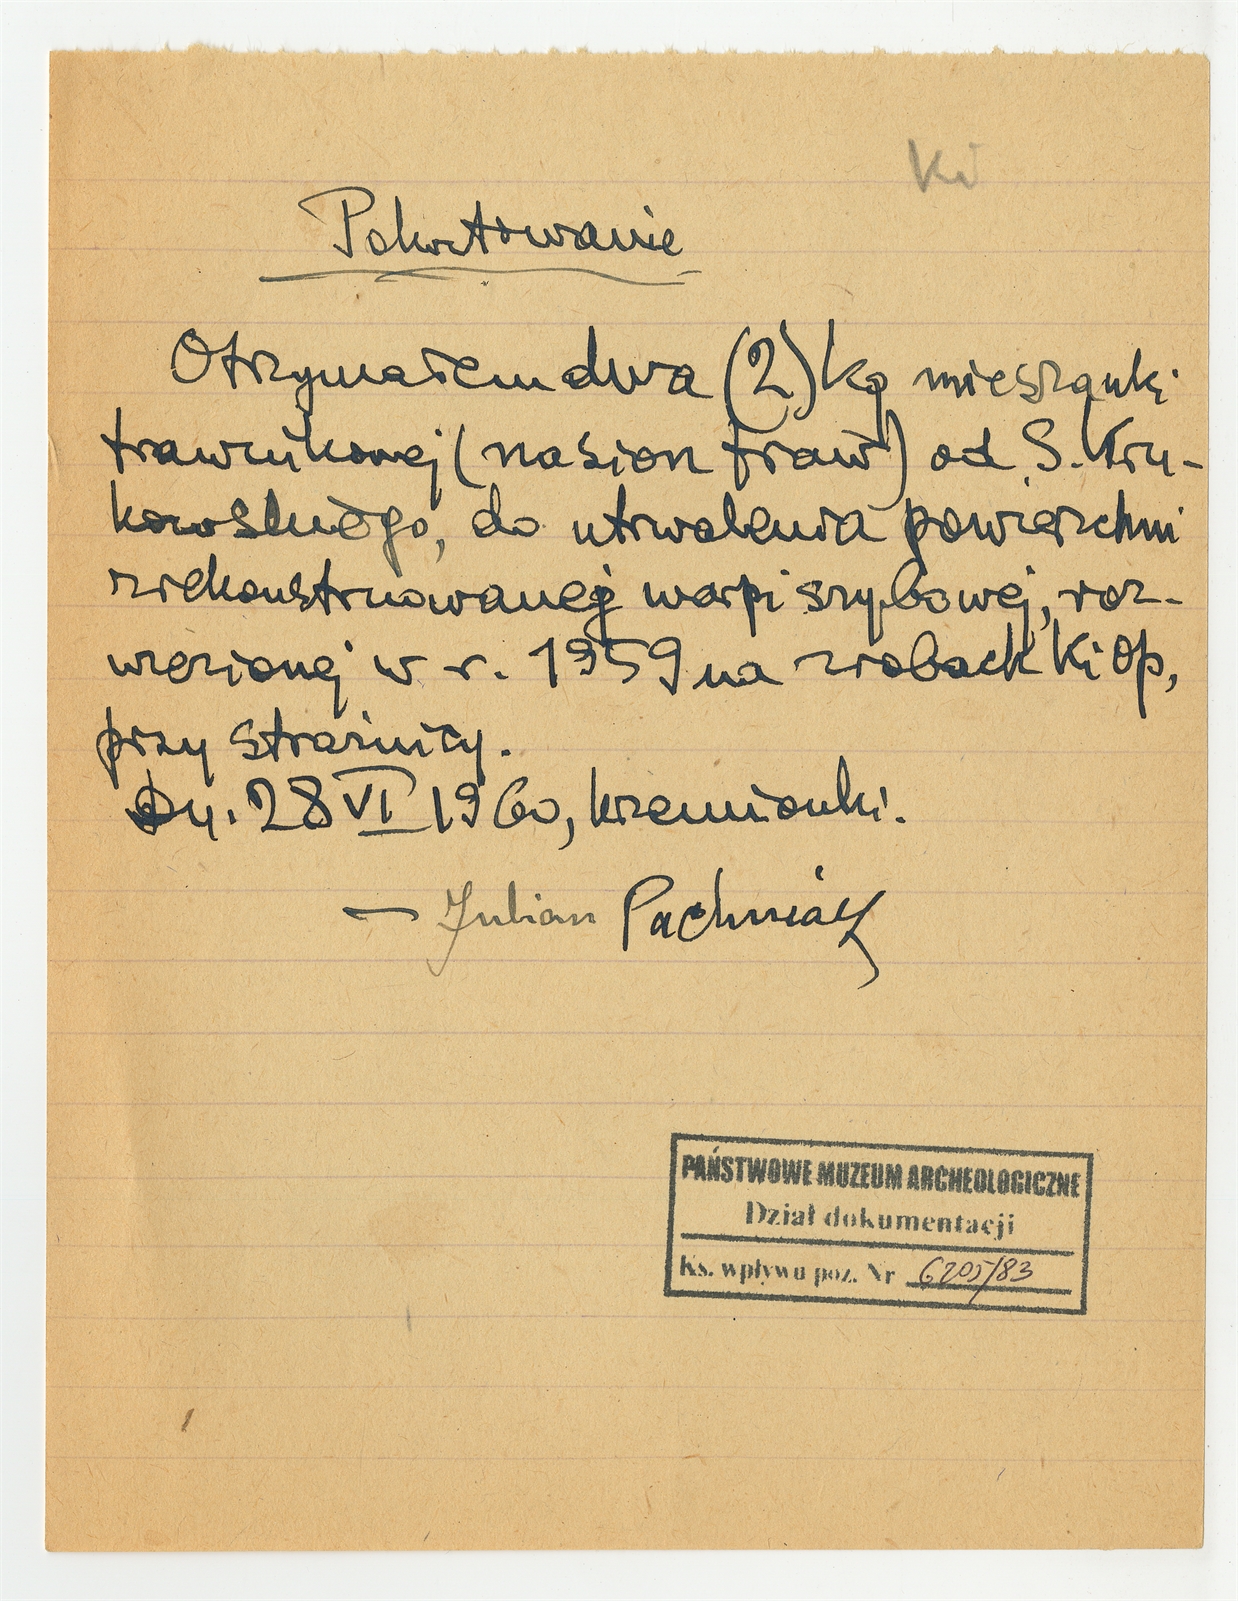 Ki
Pokwitowanie
Otrzymałem dwa (2) kg mieszanki
trawnikowej (nasion traw) od S. Kru-
kowskiego, do utrwalenia powierzchni
zrekonstruowanej warpi szybowej, roz-
wiezionej w r. 1959 na zrobach Ki Op,
przy strażnicy.
Dn. 28 VI 1960, Krzemionki.
— Julian Pachniak
PAŃSTWOWE MUZEUM ARCHEOLOGICZNE
Dział dokumentacji
Ks. wpływu poz. Nr 6205/83